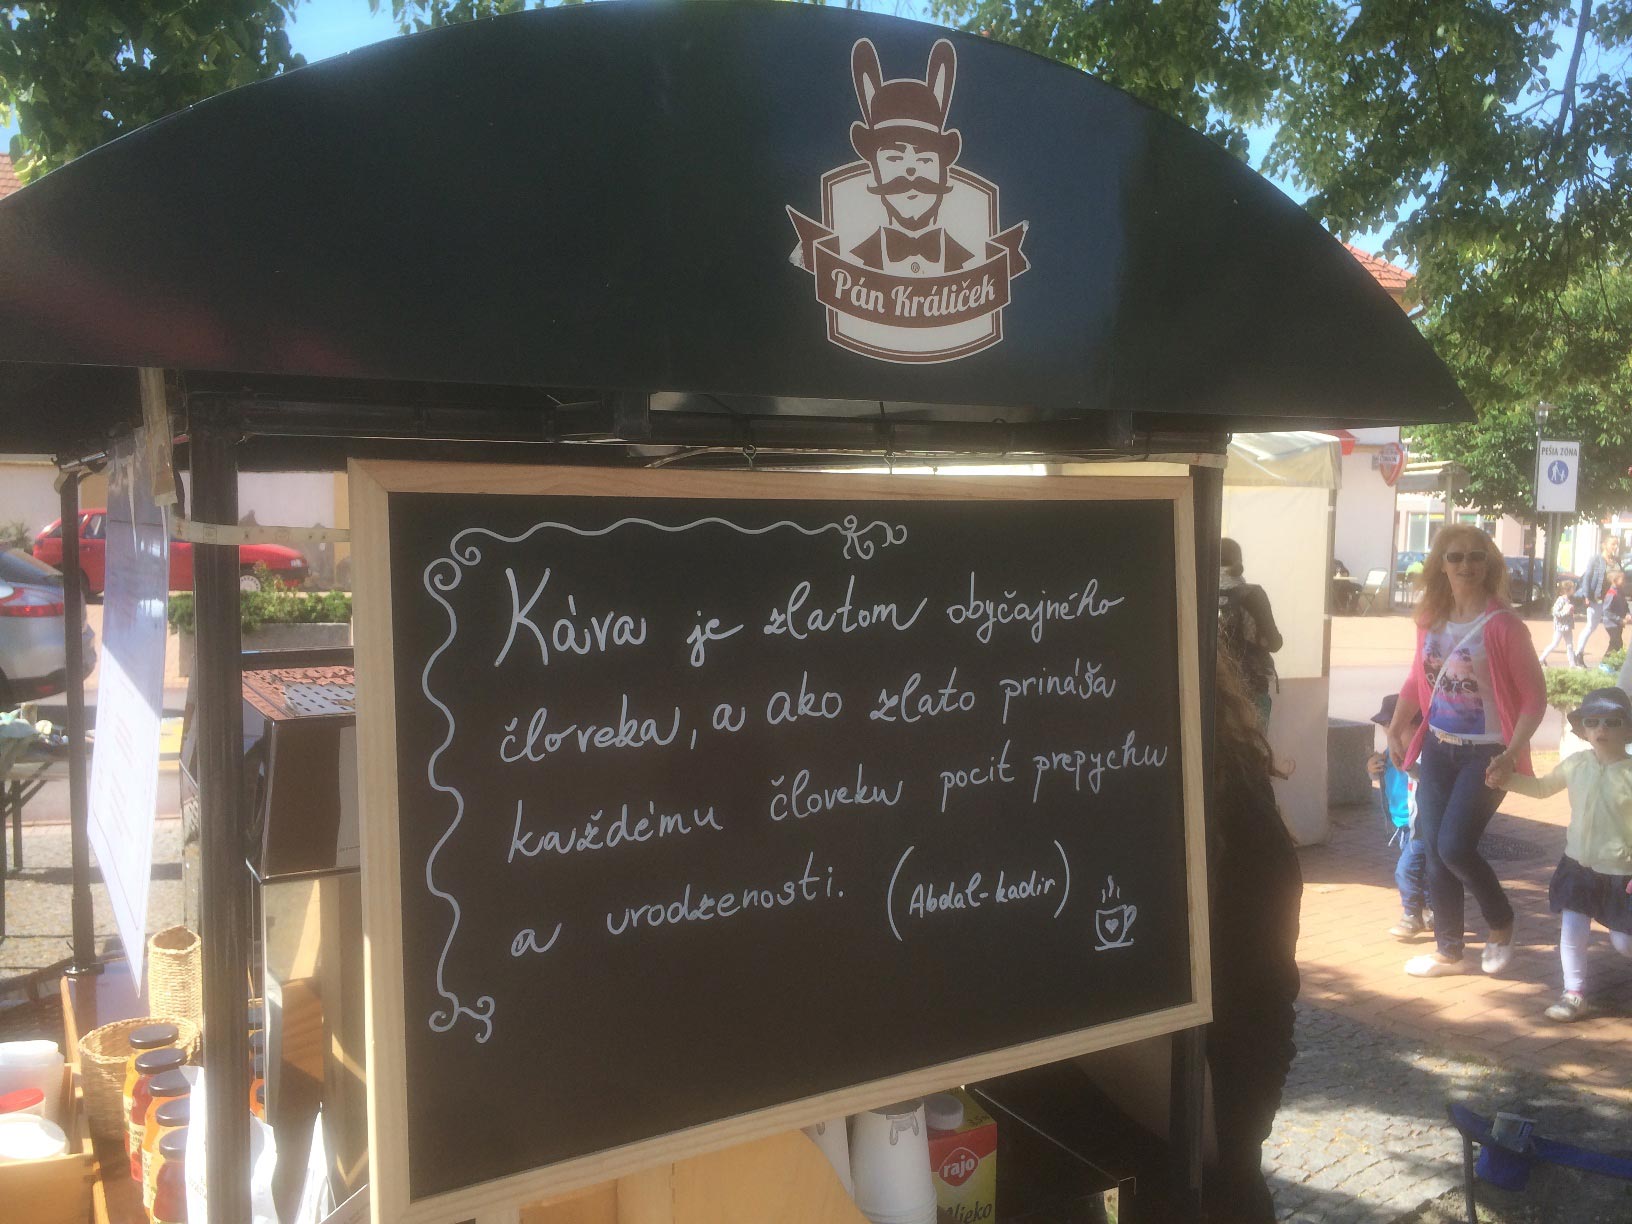 Pán Králiček
Káva je zlatom obyčajného
človeka, a ako zlato prináša
každému človeku pocit prepychu
a urodzenosti. (Abdal-kadir)
PEŠIA ZÓNA
rajo